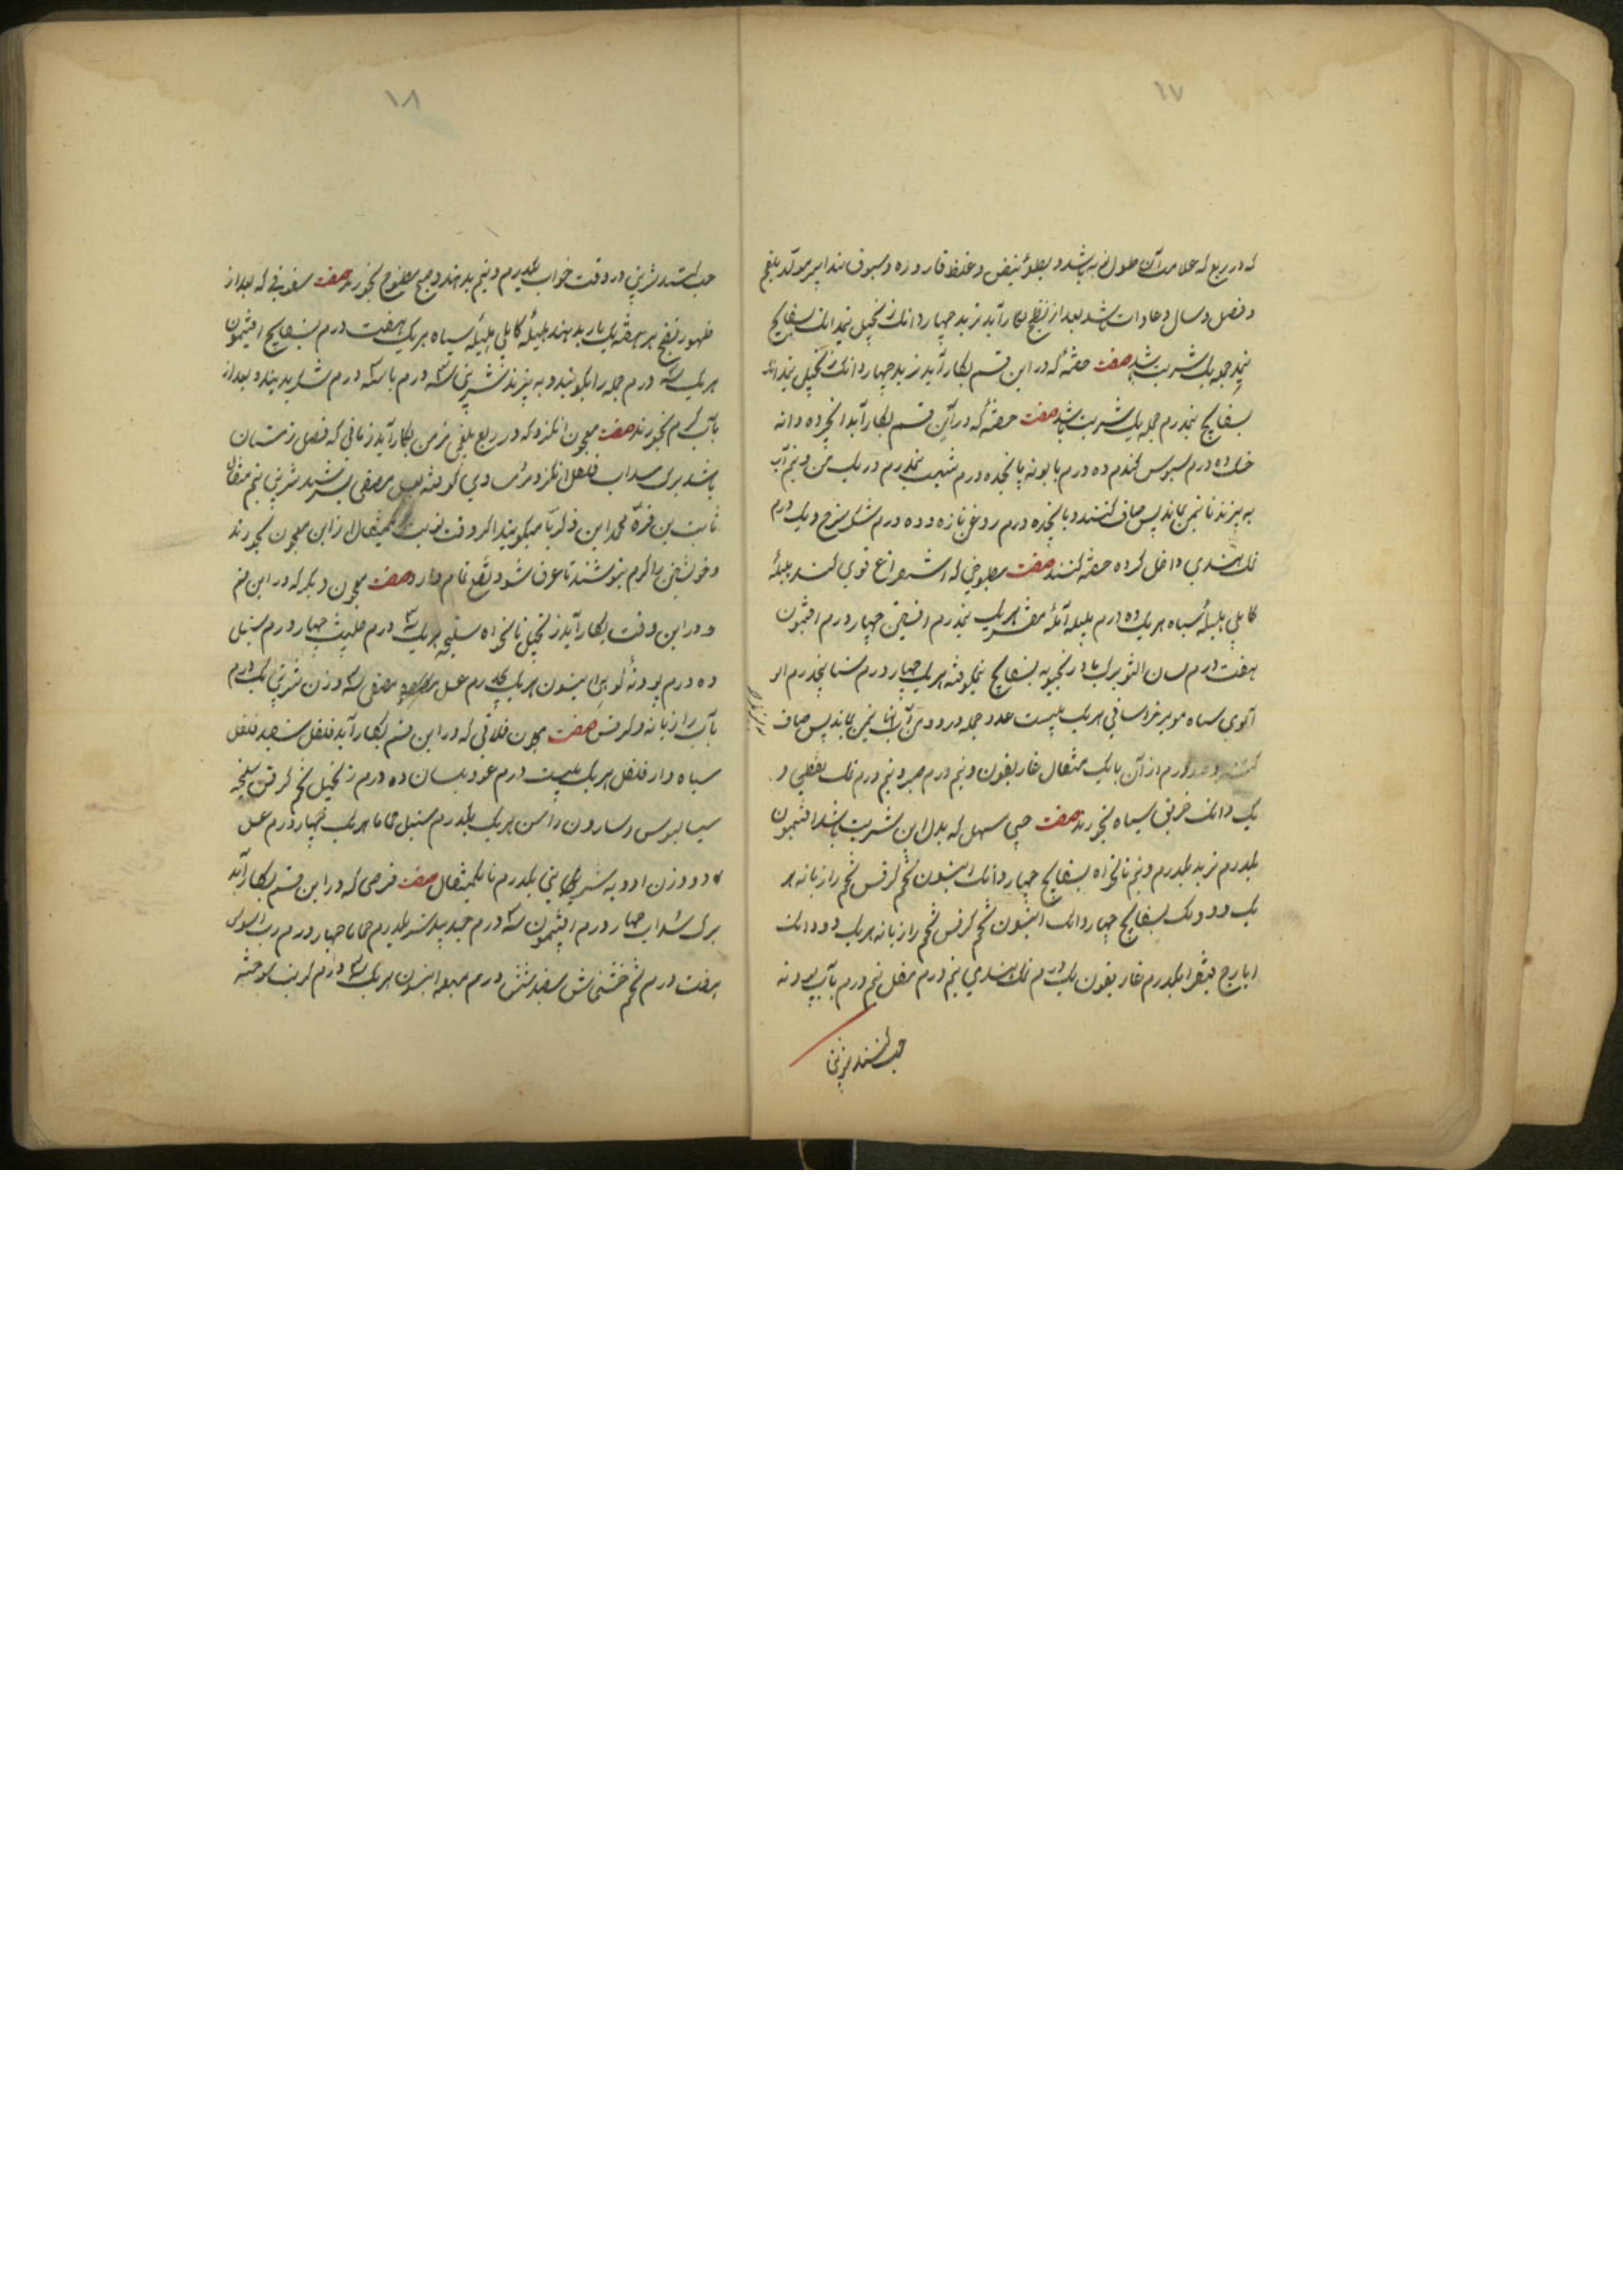 ۱۷
که در ربع که علامت آن طول نوبه باشد و بطؤ نبض و غلظ قاروره و سبوق تدابیر مولد بلغم
و فصل و سال و عادات باشد بعد از نضج بکار آید تربد چهار دانک زنجبیل نیم دانک بسفایج
نیم جمله یک شربت باشد صفت حقنه که در این قسم بکار آید تربد چهار دانک زنجبیل نیم دانک
بسفایج نیمدرم جمله یک شربت باشد صفت حقنه که در این قسم بکار آید انجیر ده دانه
خسک ده درم سبوس گندم ده درم بابونه پانجده درم شبت پنجدرم در یک من و نیم آب
به پزند تا نیمن بماند پس صاف کنند و با پنجده درم روغن تازه و ده درم شکر سرخ و یک درم
نمک هندی داخل کرده حقنه کنند صفت مطبوخی که استفراغ قوی کند هلیلهٔ
کابلی هلیلهٔ سیاه هر یک ده درم بلیله آملهٔ مقشر هر یک پنجدرم افسنتین چهار درم افتیمون
هفت درم لسان الثور برک بادرنجبویه بسفایج نیمکوفته هر یک چهار درم سنا پنجدرم
آلوی سیاه مویز خراسانی هر یک بیست عدد جمله در دو من آب تا نیمن بماند پس صاف
کنند درم از آن با یک مثقال غاریقون و نیم درم صبر و نیم درم نمک نفطی و
یک دانک خربق سیاه بخورند صفت حبی مسهل که بدل این شربت باشد افتیمون
یکدرم تربد یکدرم و نیم نانخواه بسفایج چهار دانک انیسون تخم کرفس تخم رازیانه هر
یک دو دنک بسفایج چهار دانک انیسون تخم کرفس تخم رازیانه هر یک دو دانک
ایارج فیقرا یکدرم غاریقون یک درم نمک هندی نیم درم مقل نیم درم بآب پودنه
حب کنند شربتی
۱۸
حب کنند شربتی در وقت خواب یکدرم و نیم بدهند و صبح مطبوخ بخورند صفت سفوفی که بعد از
ظهور نضج هر هفته یک بار بدهند هلیلهٔ کابلی هلیلهٔ سیاه هر یک هفت درم بسفایج افتیمون
هر یک سه درم جمله را بکوبند و به پزند شربتی سه درم با سه درم شکر بدهند و بعد از
بآب کرم بخورند صفت معجون انکزد که در ربع بلغمی مزمن بکار آید زمانی که فصل زمستان
باشد برک سداب فلفل انکزد مر مساوی کوفته بعسل مصفی بسرشند شربتی نیم مثقال
ثابت بن قره و محمد ابن زکریا میکویند اکر وقت نوبت نیمثقال از این معجون بخورند
و خویشتن را کرم بپوشند تا عرق شود نفع تمام دارد صفت معجون دیکر که در این قسم
و در این وقت بکار آید زنجبیل نانخواه سلیخه هر یک سه درم حلتیت چهار درم سنبل
ده درم پودنهٔ کوهی انیسون هر یک درم عسل مصفی سه وزن شربتی یک درم
بآب رازیانه و کرفس صفت معجون فلافلی که در این قسم بکار آید فلفل سفید فلفل
سیاه دار فلفل هر یک بیست درم عود بلسان ده درم زنجبیل تخم کرفس سلیخه
سیسالیوس و سارون راسن هر یک یکدرم سنبل حماما هر یک چهار درم عسل
دو وزن ادویه شربتی یکدرم تا یکمثقال صفت قرصی که در این قسم بکار آید
برک سداب چهار درم افتیمون سه درم جندبیدستر یکدرم حماما چهار درم رب السوس
هفت درم تخم خشخاش سفید شش درم میعه انیسون هر یک سه درم کربت سوخته